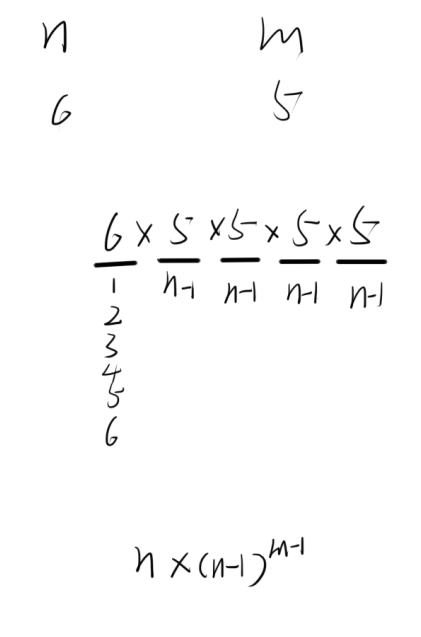 n m
6 5
6 × 5 × 5 × 5 × 5
1 n-1 n-1 n-1 n-1
2
3
4
5
6
n × (n-1)^{m-1}